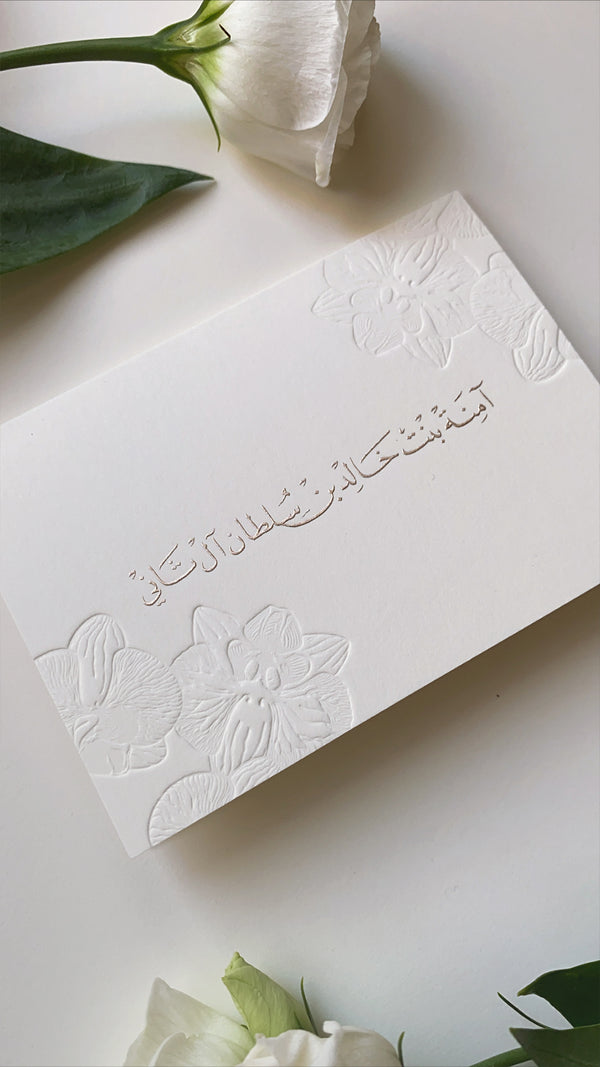 آمِنَة بْنْت خَالِد بْنِ سُلطان آل ثَانِي